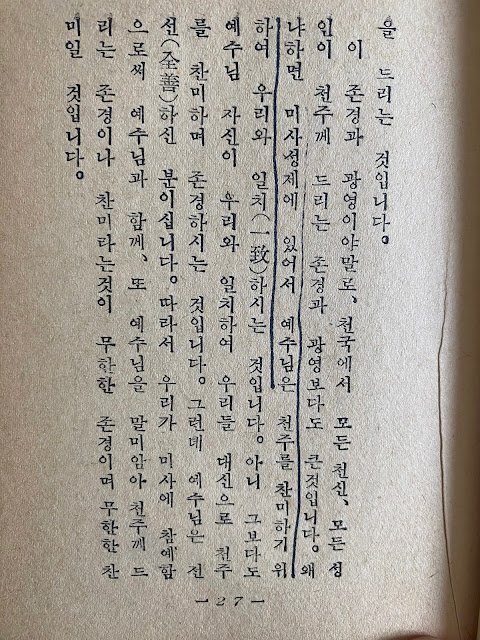 을 드리는 것입니다.
이 존경과 광영이야말로, 천국에서 모든 천신, 모든 성
인이 천주께 드리는 존경과 광영보다도 큰것입니다. 왜
냐하면 미사성제에 있어서 예수님은 천주를 찬미하기 위
하여 우리와 일치(一致)하시는 것입니다. 아니 그보다도
예수님 자신이 우리와 일치하여 우리들 대신으로 천주
를 찬미하며 존경하시는 것입니다. 그런데 예수님은 전
선(全善)하신 분이십니다. 따라서 우리가 미사에 참예함
으로써 예수님과 함께, 또 예수님을 말미암아 천주께 드
리는 존경이나 찬미라는것이 무한한 존경이며 무한한 찬
미일 것입니다.
— 27 —